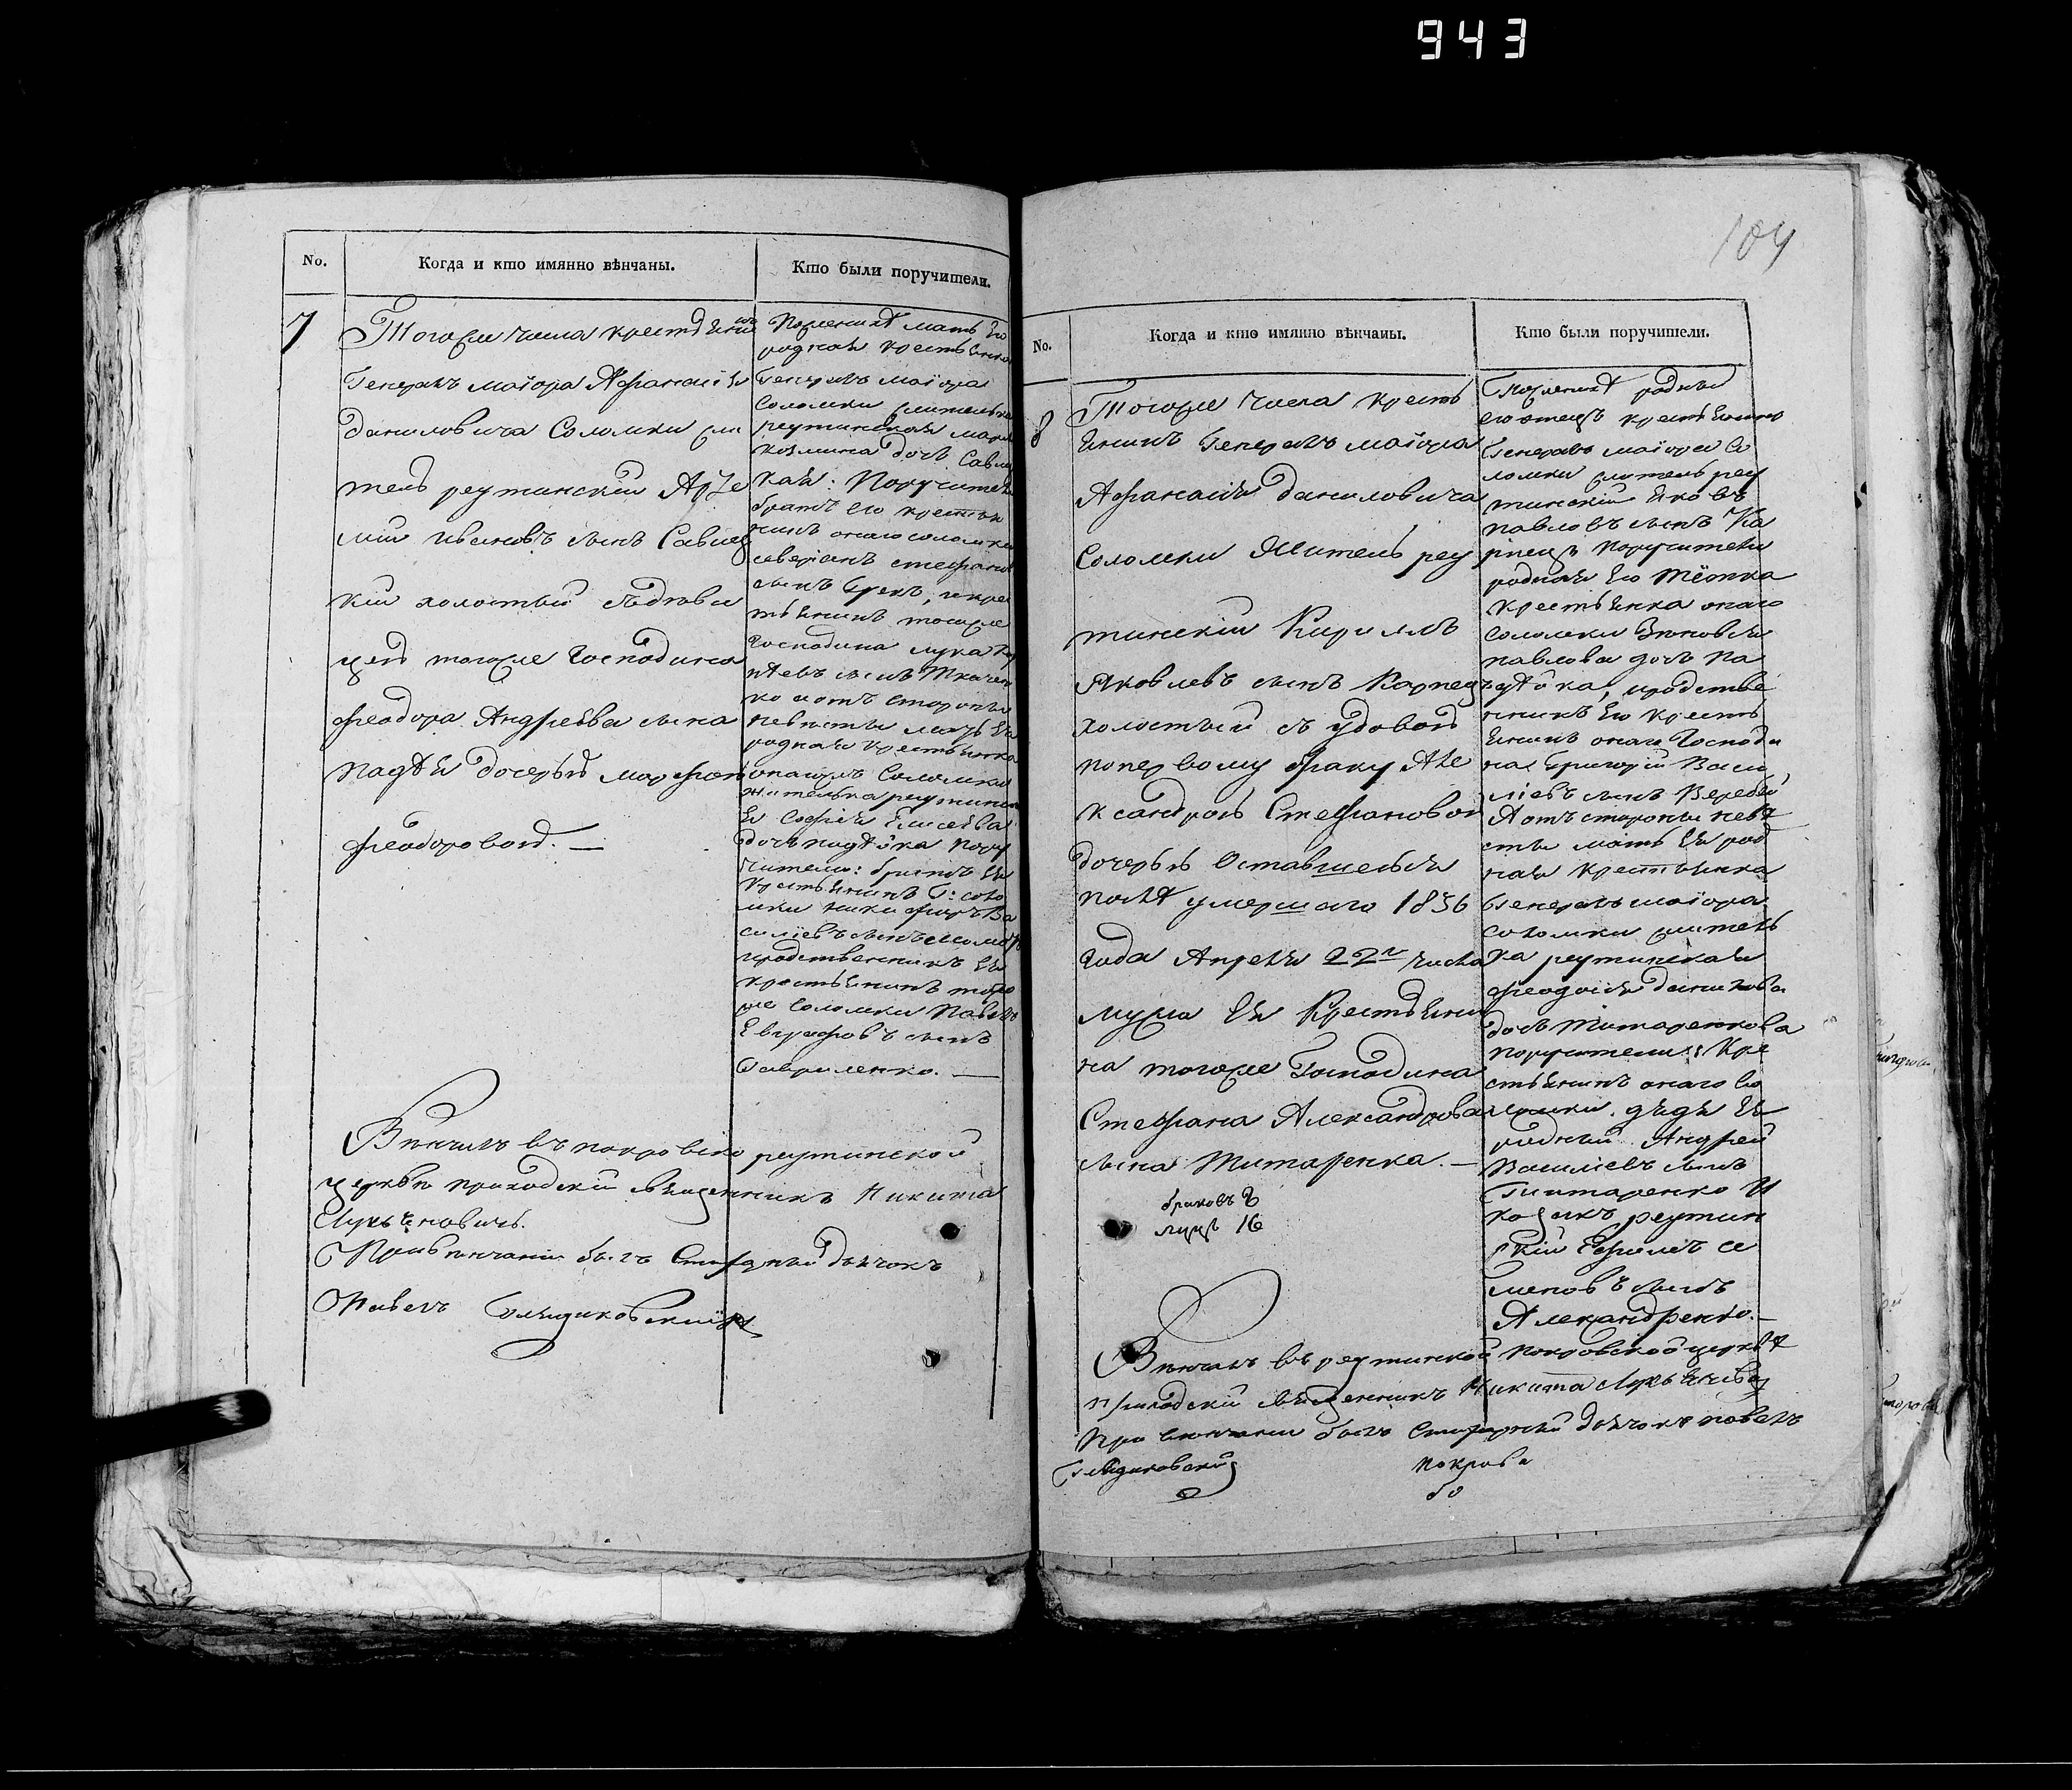 943
No.
Когда и кто имянно вѣнчаны.
Кто были поручители.
7
Тогоже числа крестьянинъ
Генералъ маіора Афанасія
даниловича Соломки жи
тель реутинскій Арте
мій ивановъ сынъ Савиц
кій холостый съдѣви
цею тогоже Господина
феодора Андреева сына
падѣя дочерью марфою
феодоровою. —
мать его
родная крестьянка
Генералъ маіора
Соломки жителька
реутинская
козмина дочь
кая: Поручители
братъ его крестья
нинъ онаго соломки
северіанъ
сынъ
тьянинъ тогоже
Господина лука
сынъ Ткачен
ко аотъ стороны
невѣсты мать ея
родная крестьянка
Соломки
жителька реутинска
я Софія Елисеева
дочь падѣйка пору
чители: братъ ея
крестьянинъ Г: соло
мки никифоръ Ва
силіевъ сынъ
иродственникъ ея
крестьянинъ того
же соломки Павелъ
Евграфовъ сынъ
Гавриленко. —
Вѣнчалъ въ покровско реутинской
церкви приходскій священникъ Никита
Лукьяновичь.
Привѣнчаніи былъ Стихарный дьячокъ
Павелъ
104
No.
Когда и кто имянно вѣнчаны.
Кто были поручители.
8
Тогоже числа кресть
янинъ Генералъ маіора
Афанасія даниловича
Соломки Житель реу
тинскій Кириллъ
Яковлевъ сынъ Карпецъ
холостый съ удовою
поперьвому браку Але
ксандрою Стефановою
дочерью Оставшеюся
послѣ умершаго 1856
года Апреля 22го числа
мужа ея Крестьяни
на тогоже Господина
Стефана Александрова
сына Титаренка. —
браковъ 8
лицъ 16
родный
его отецъ крестьянинъ
Генералъ маіора Со
ломки житель реу
тинскій Яковъ
павловъ сынъ Ка
рпецъ поручители
родная его тётка
крестьянка онаго
соломки Зѣновія
павлова дочь па
дѣйка, иродстве
нникъ его кресть
янинъ онаго Господи
на Григорій Васи
ліевъ сынъ
Аотъ стороны невѣ
сты мать ея род
ная крестьянка
Генералъ маіора
соломки житель
ка реутинская
феодосія данилова
дочь Титаренкова
поручители: Кре
стьянинъ онаго Со
ломки. дядя ея
родный. Андрей
Василіевъ сынъ
Титаренко И
козакъ реутин
скій Ефимъ се
меновъ сынъ
Александренко. —
Вѣнчалъ въ реутинской покровской церквѣ
приходскій священникъ Никита
При вѣнчаніи былъ Стихарный дьячокъ павелъ
покрова
60